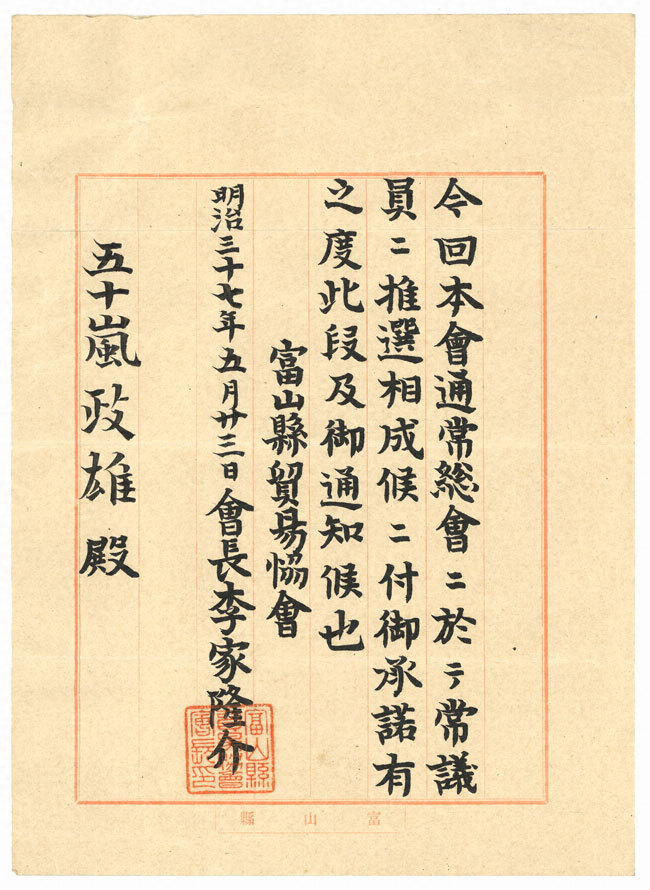 今回本會通常総會ニ於テ常議
員ニ推選相成候ニ付御承諾有
之度此段及御通知候也
富山縣貿易協會
明治三十七年五月廿三日會長李家隆介
五十嵐政雄殿
富山縣貿易協會會長印
富山縣